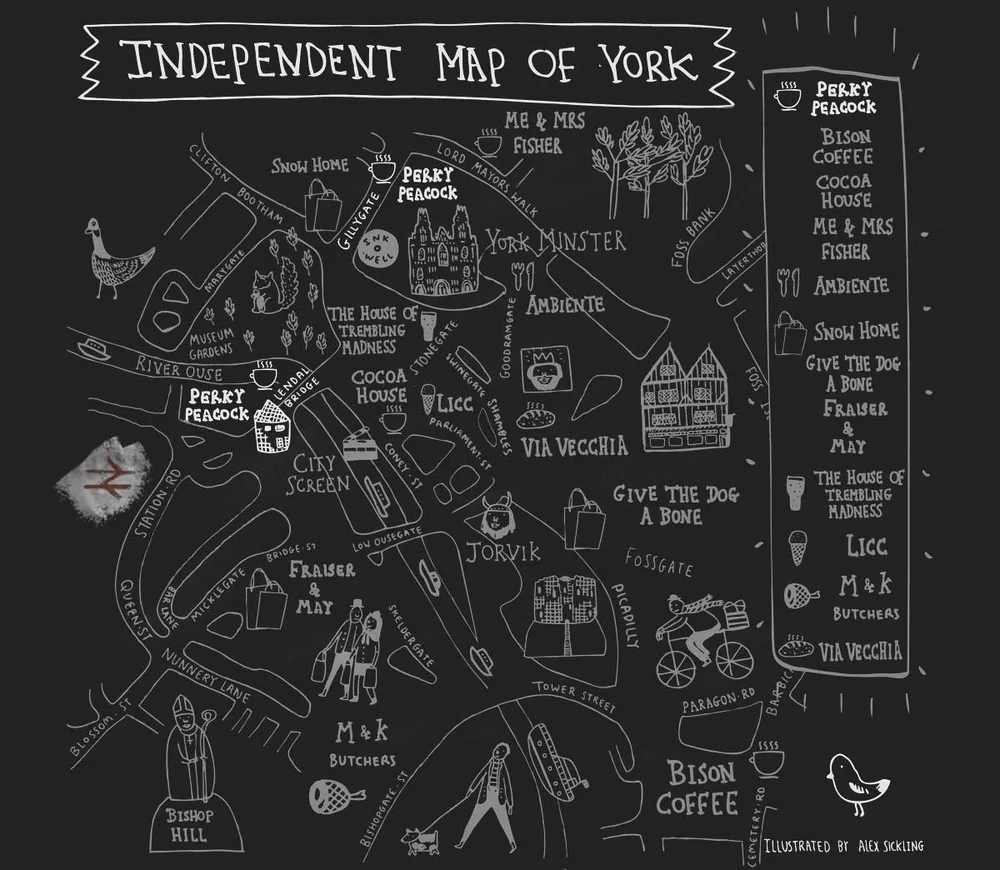 INDEPENDENT MAP OF YORK
PERKY
PEACOCK
BISON
COFFEE
COCOA
HOUSE
ME & MRS
FISHER
AMBIENTE
SNOW HOME
GIVE THE DOG
A BONE
FRAISER
&
MAY
THE HOUSE OF
TREMBLING
MADNESS
LICC
M & K
BUTCHERS
VIA VECCHIA
ME & MRS
FISHER
CLIFTON
BOOTHAM
SNOW HOME
PERKY
PEACOCK
GILLYGATE
LORD MAYORS WALK
INK
WELL
YORK MINSTER
FOSS BANK
LAYERTHOR
MARYGATE
MUSEUM
GARDENS
RIVER OUSE
THE HOUSE OF
TREMBLING
MADNESS
STONEGATE
GOODRAMGATE
AMBIENTE
SWINEGATE
SHAMBLES
PERKY
PEACOCK
LENDAL
BRIDGE
COCOA
HOUSE
LICC
PARLIAMENT.ST
VIA VECCHIA
FOSS
CITY
SCREEN
CONEY.ST
STATION.RD
JORVIK
GIVE THE DOG
A BONE
FOSSGATE
LOW OUSEGATE
BRIDGE.ST
MICKLEGATE
FRAISER
&
MAY
QUEEN.ST
BAR LANE
SKELDERGATE
PICADILLY
NUNNERY LANE
BLOSSOM.ST
TOWER STREET
PARAGON.RD
BARBIC
M & K
BUTCHERS
BISHOPGATE.ST
BISON
COFFEE
CEMETERY.RD
BISHOP
HILL
ILLUSTRATED BY ALEX SICKLING